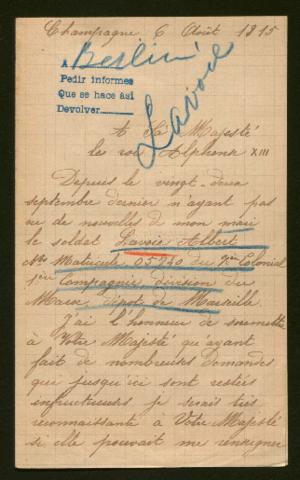 Champagne 6 Août 1915
A Berlin
Pedir informes
Que se hace asi
Devolver
Lavoie
A Sa Majesté
le roi Alphonse XIII
Depuis le vingt-deux
septembre dernier n'ayant pas
eu de nouvelles de mon mari
le soldat Lavoie Albert
No Matricule 05740 du 7ième Colonial
1ère Compagnie, division du
Maroc, dépôt de Marseille.
J'ai l'honneur de soumettre
à Votre Majesté qu'ayant
fait de nombreuses demandes
qui jusqu'ici sont restées
infructueuses je serais très
reconnaissante à Votre Majesté
si elle pouvait me renseigner